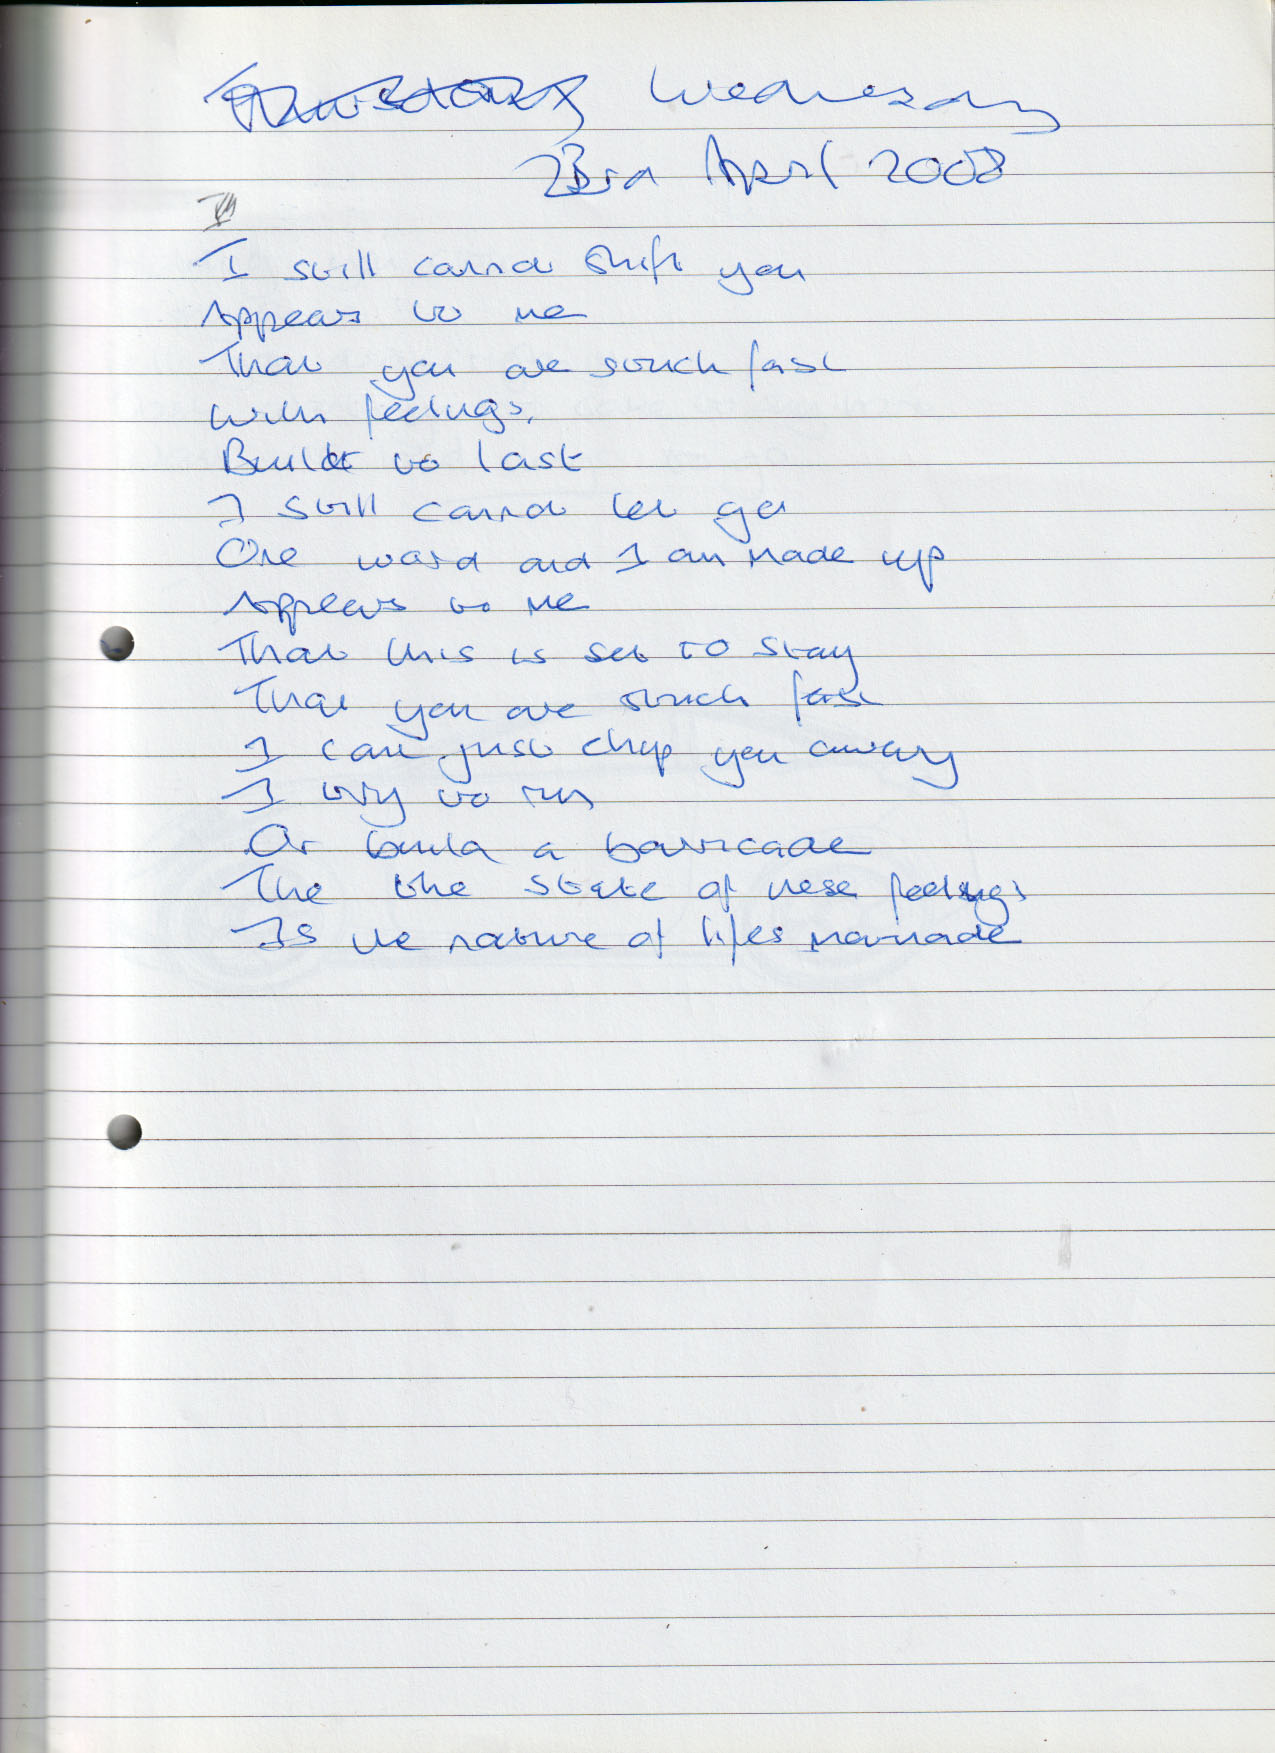 Thursday Wednesday
23rd April 2008
I still cannot shift you
Appears to me
That you are stuck fast
With feelings,
Built to last
I still cannot let go
One word and I am made up
Appears to me
That this is set to stay
That you are stuck fast
I cant just chip you away
I try to run
Or build a barricade
The the state of these feelings
Is the nature of lifes